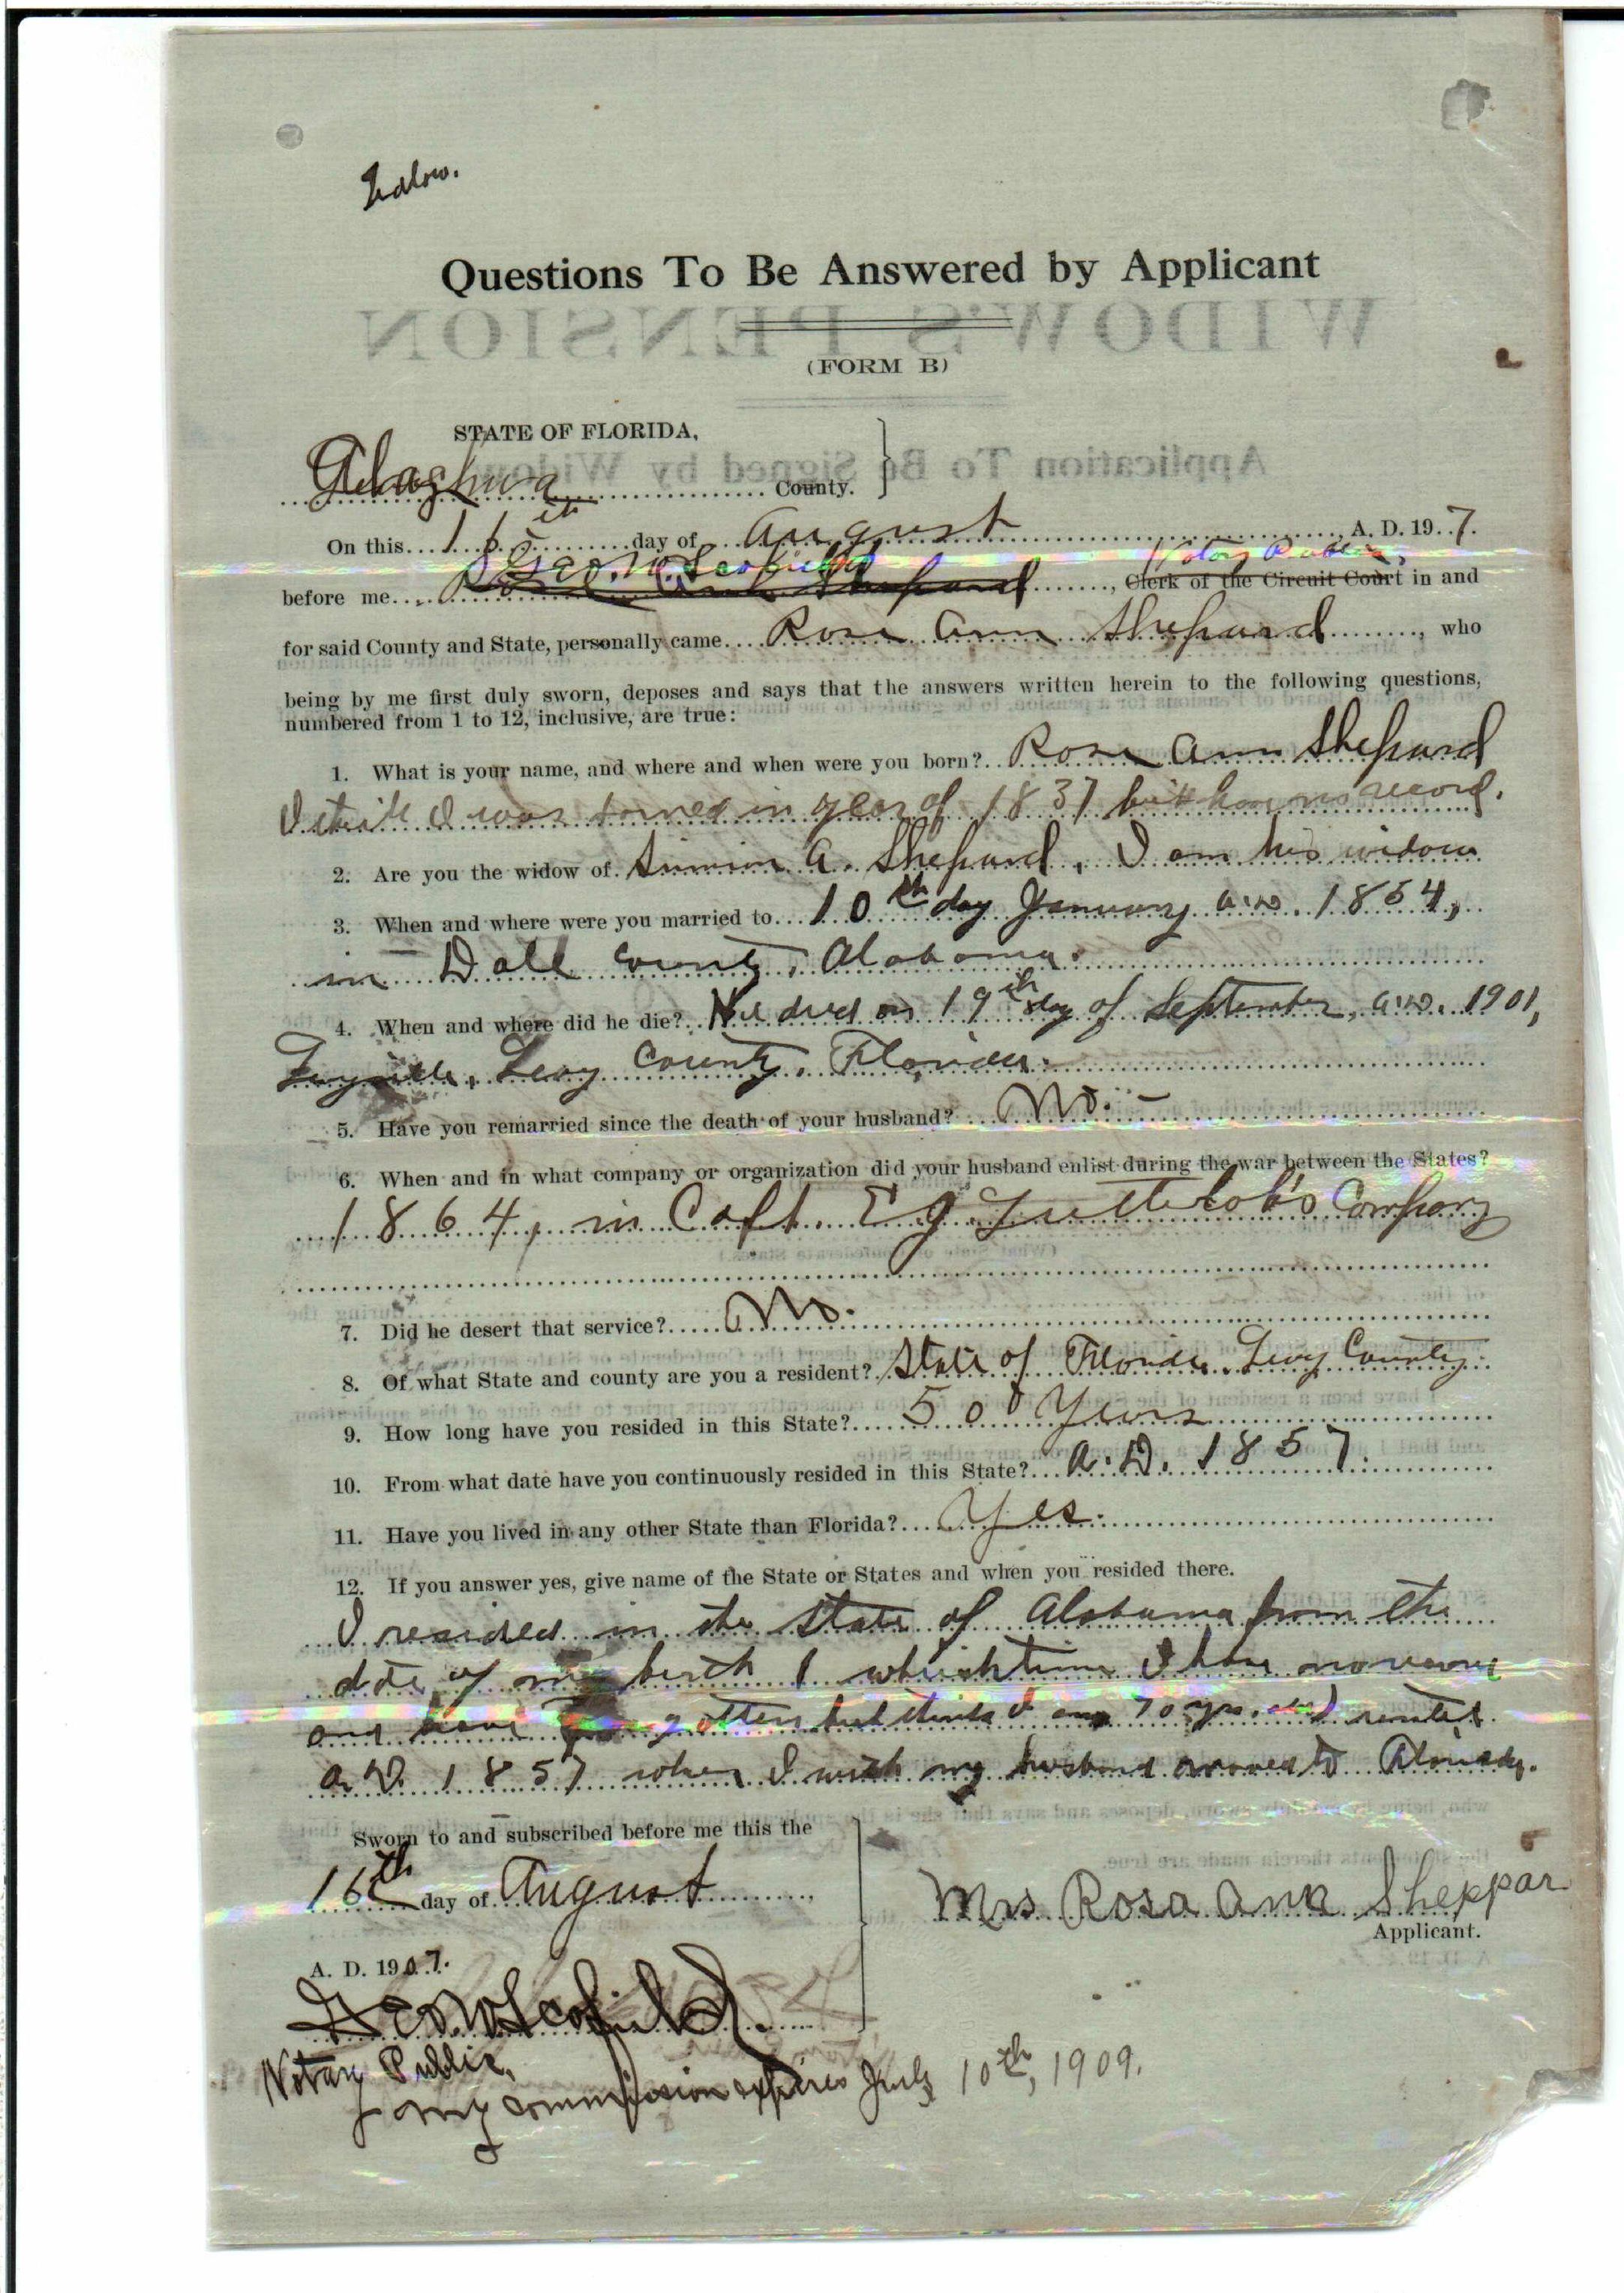 Questions To Be Answered by Applicant
WIDOW'S PENSION
(FORM B)
STATE OF FLORIDA,
Application To Be Signed by Widow
Alaghua County.
On this 16th day of August A. D. 19 7.
Geo. W. Scofield Notary Public,
before me Rosa Ann Shepard, Clerk of the Circuit Court in and
for said County and State, personally came Rosa Ann Shepard, who
being by me first duly sworn, deposes and says that the answers written herein to the following questions,
numbered from 1 to 12, inclusive, are true:
1. What is your name, and where and when were you born? Rosa Ann Shepard
I think I was borned in year of 1837 but have no record.
2. Are you the widow of Simion A. Shepard, I am his widow
3. When and where were you married to 10th day January A.D. 1854,
in Dall County, Alabama.
4. When and where did he die? He died on 19th day of September, A.D. 1901,
Levy County, Florida.
5. Have you remarried since the death of your husband? No. -
6. When and in what company or organization did your husband enlist during the war between the States?
1864, in Capt. E J Company
7. Did he desert that service? No.
8. Of what State and county are you a resident? State of Florida Levy County
9. How long have you resided in this State? 50 Years
10. From what date have you continuously resided in this State? A.D. 1857.
11. Have you lived in any other State than Florida? Yes.
12. If you answer yes, give name of the State or States and when you resided there.
I resided in the State of Alabama from the
date of my birth which time I have no record
and have gotten but think I am 70 yrs. old until
A.D. 1857 when I with my husband moved to Florida.
Sworn to and subscribed before me this the
16th day of August
Mrs Rosa Ann Sheppar
Applicant.
A. D. 1907.
Geo. W. Scofield.
Notary Public,
My commission expires July 10th, 1909.